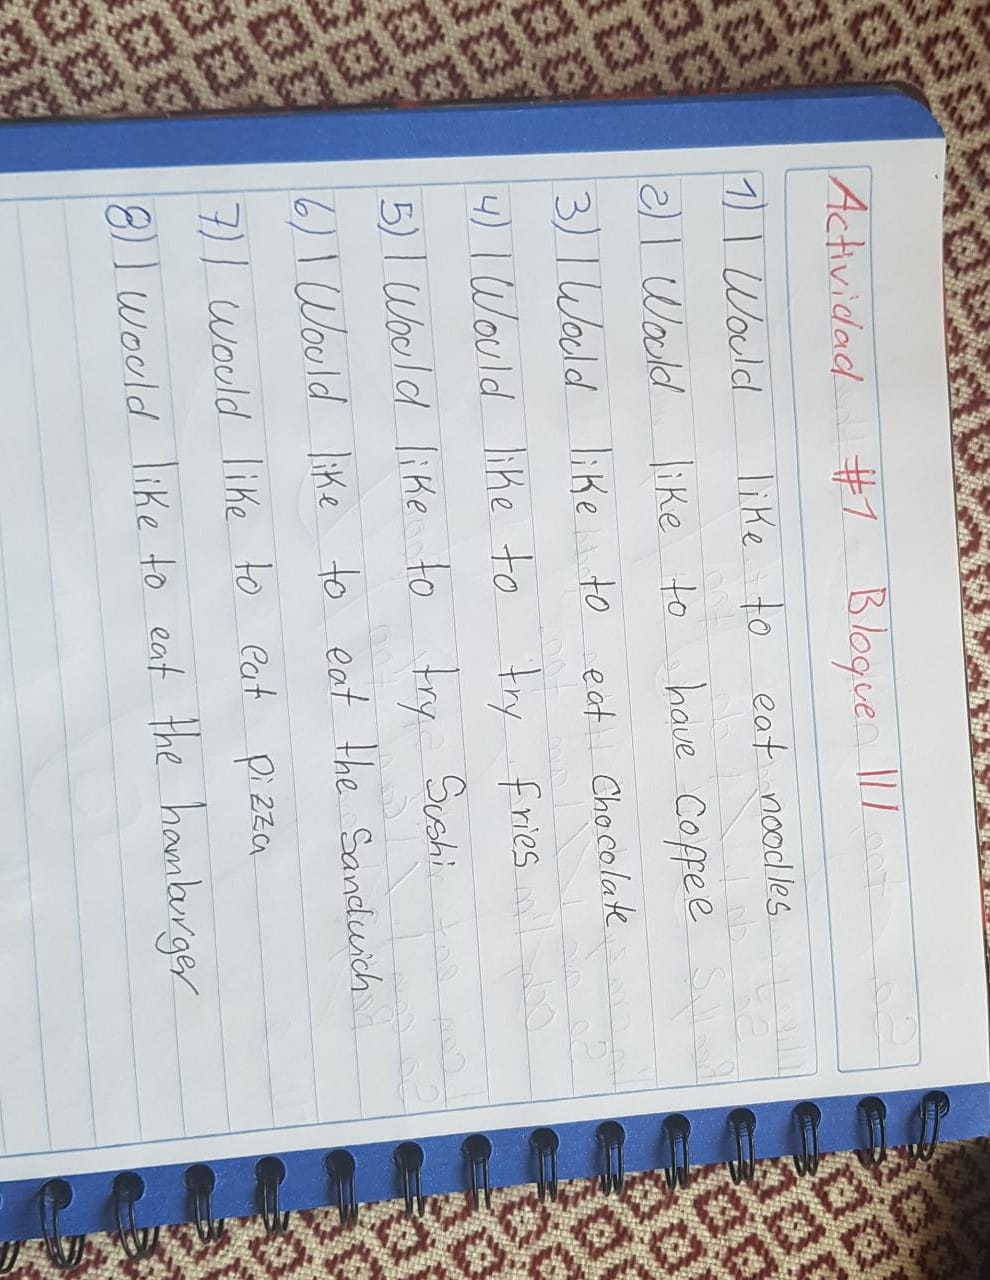 Actividad #1 Bloque III
1) I Would like to eat noodles
2) I Would like to have Coffee
3) I Would like to eat Chocolate
4) I Would like to try fries
5) I Would like to try Sushi
6) I Would like to eat the Sandwich
7) I would like to eat pizza
8) I would like to eat the hamburger